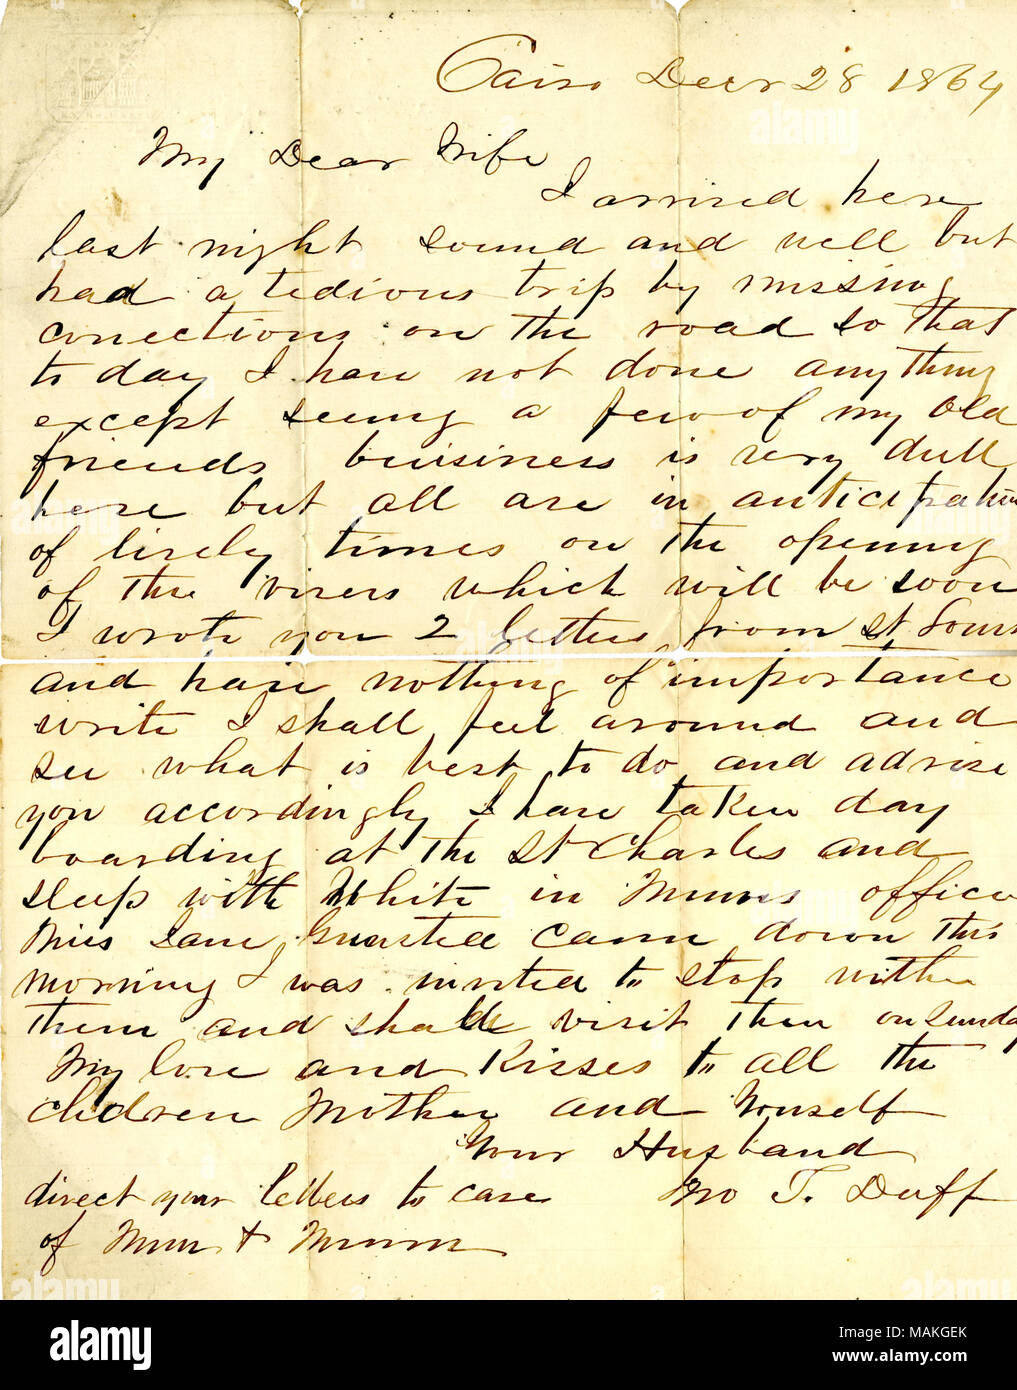 Cairo Decr 28 1864
My Dear Wife
I arrived here
last night sound and well but
had a tedious trip by missing
conections on the road so that
to day I have not done anything
except seeing a few of my Old
friends buisiness is very dull
here but all are in anticipation
of lively times on the opening
of the rivers which will be soon
I wrote you 2 letters from St Louis
and have nothing of importance
write I shall feel around and
see what is best to do and advise
you accordingly I have taken day
boarding at the St Charles and
sleep with White in Munns office
Miss Jane came down this
morning I was invited to stop with
them and shall visit them on Sunday
My love and Kisses to all the
children Mother and Yourself
Your Husband
direct your letters to care Jno T. Duff
of Munn & Munn
alamy
Image ID: MAKGEK
www.alamy.com